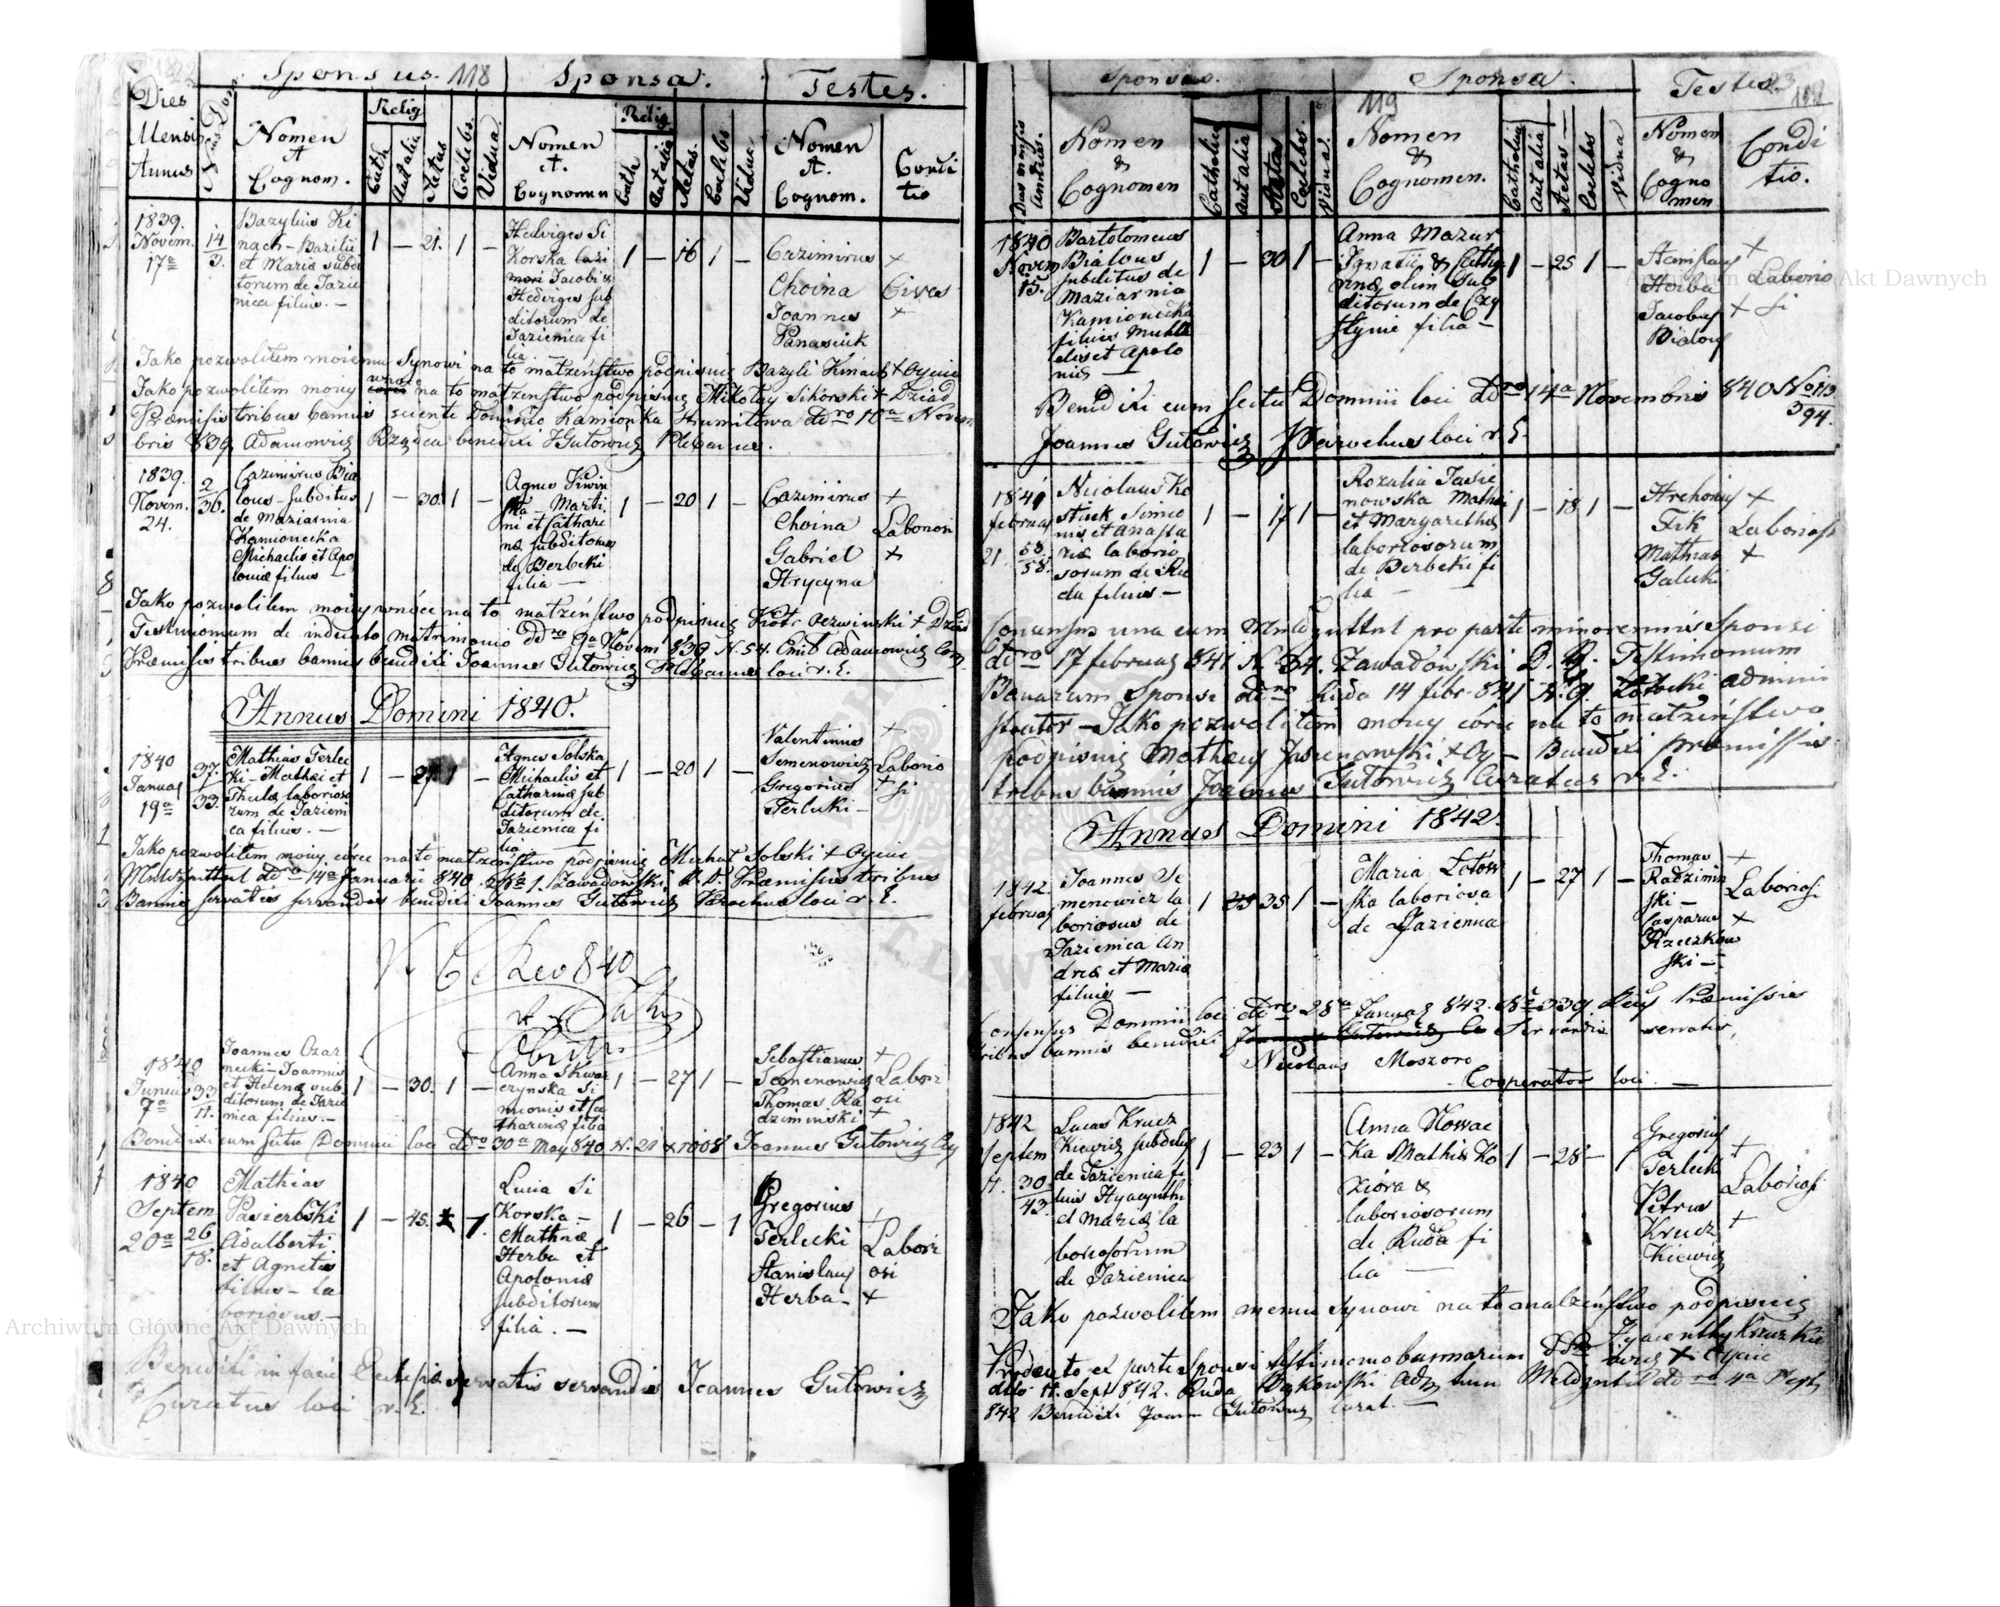 Sponsus. 118 Sponsa. Testes.
Dies Mensis Annus
Nrus Dom.
Nomen et Cognom.
Relig
Cath
Aut alia
Aetas
Coelebs.
Vidua.
Nomen et Cognomen
Relig
Cath
Aut alia
Aetas.
Coelebs
Viduae
Nomen et Cognom.
Conditio
1839.
Novem.
17a
14
3.
Bazylius Ki
nach - Bazilii
et Mariæ subdi
torum de Jazie
nica filius. -
1 - 21. 1 -
Hedviges Si
korska
Jacobi &
Hedviges sub
ditorum de
Jazienica fi
lia. -
1 - 16 1 -
Cazimirus +
Choina Cives
Joannes +
Panasiuk
Jako pozwolitem moiemu Synowi na to matzeństwo podpisuię Bazyli Kinach + Oyciec
Jako pozwolitem moiey wnuce na to matzeństwo podpisuię Mikołay Sikorski + Dziad
Præmissis tribus bannis scienti Dominio Kamionka Strumilowa ddro 10a Novem
bris 839 Adamowicz Rządca benedixi J Gutowicz Plebanus.
1839.
Novem.
24.
2
36.
Cazimirus Bia
lous - subditus
de Maziarnia
Kamionecka
Michaelis et Apo
loniæ filius -
1 - 30. 1 -
Agnes
Marti
ni et Cathari
næ subditorum
de Berbeki
filia -
1 - 20 1 -
Cazimirus +
Choina Laboriosi
Gabriel +
Hrycyna
Jako pozwolitem moiey wnuce na to matzeństwo podpisuię Piotr + Dziad
Testimonium de indulto matrimonio ddro 9a Novem 839 N. 54. Emit Adamowicz Com
Præmissis tribus bannis benedixi Joannes Gutowicz Plebanus loci r. l.
Annus Domini 1840.
1840
Januar
19a
37.
33.
Mathias Terlec
ki - Mathæi et
Theclæ laborioso
rum de Jazieni
ca filius. -
1 - 27 1 -
Agnes Solska
Michaelis et
Catharinæ sub
ditorum de
Jazienica fi
lia. -
1 - 20 1 -
Valentinus +
Semenowicz Laborio
Gregorius + si
Terlecki -
Jako pozwolitem moiey córce na to matzeństwo podpisuię Michał Solski + Oyciec
ddro 14a Januarii 840. No 1. Zawadowski D. D. Præmissis tribus
Bannis servatis servandis benedixi Joannes Gutowicz Parochus loci r. l.
840
1840
Junius
7a
33
11.
Joannes Czar
necki - Joannis
et Helenæ sub
ditorum de Jazie
nica filius. -
1 - 30. 1 -
Anna Skwar
czynska Si
meonis et Ca
tharinæ filia
1 - 27 1 -
Sebastianus +
Semenowicz Labori
Thomas Ra osi
dziminski +
Benedixi cum scitu Dominii loci ddro 30a May 840 N. 21 Joannes Gutowicz
1840
Septem
20a
26
18.
Mathias
Pasierbski
Adalberti
et Agnetis
filius - la
boriosus. -
1 - 45. 1.
Lucia Si
korska -
Mathiæ
Herba et
Apoloniæ
subditorum
filia. -
1 - 26 - 1
Gregorius +
Terlecki Labori
Stanislaus osi
Herba - +
Benedixi in facie Ecclesiæ servatis servandis Joannes Gutowicz
Curatus loci r. l.
Sponsus. Sponsa. Testes.
119
Dies mensis Annus.
Nomen & Cognomen
Catholica
Aut alia
Aetas
Coelebs.
Vidua.
Nomen & Cognomen.
Catholica
Aut alia
Aetas
Coelebs
Vidua
Nomen & Cognomen
Conditio.
1840
Novem
15.
Bartolomeus
Bialous
subditus de
Maziarnia
Kamionecka
filius Micha
elis et Apolo
niæ -
1 - 30 1 -
Anna Mazur
Ignatii & Catha
rinæ olim sub
ditorum de
filia -
1 - 25 1 -
Stanislaus +
Herba Laborio
Jacobus + si
Bialous
Benedixi cum scitu Dominii loci ddro 14a Novembris 840 No
394.
Joannes Gutowicz Parochus loci r. l.
1841
Februar
21.
53.
58.
Nicolaus Ko
stiuk Simeo
nis et Anasta
siæ laborio
sorum de Ru
da filius -
1 - 17 1 -
Rozalia Jasie
nowska Mathiæ
et Margarethæ
laboriosorum
de Berbeki fi
lia -
1 - 18 1 -
+
Fik Laboriosi
Mathias +
Galucki
Consensus una cum pro parte minorennis Sponsi
ddro 17 Februar 841 N. 34. Zawadowski D. D. Testimonium
Bannorum Sponsi ddro Ruda 14 febr 841 N. 9. admini
strator - Jako pozwolitem moiey córce na to matzeństwo
podpisuię Mathey Jasienowski + Oy - Benedixi præmissis
tribus bannis Joannes Gutowicz Curatus r. l.
Annus Domini 1842.
1842.
Februar
Joannes Se
menowicz la
boriosus de
Jazienica An
dreæ et Mariæ
filius -
1 35 1 -
Maria Zotow
ska laboriosa
de Jazienica
1 - 27 1 -
Thomas +
Radzimin Laboriosi
ski -
Casparus +
Rzeczkow
ski -
Consensus Dominii loci ddro 28a Januar 842. No 339. Præmissis
tribus bannis benedixi Joannes Gutowicz Servandis servatis,
Nicolaus Moszoro
Cooperator loci. -
1842
Septem
11.
30
43.
Lucas Krucz
kiewicz subditus
de Jazienica fi
lius Hyacynthi
et Mariæ la
boriosorum
de Jazienica
1 - 23 1 -
Anna Nowac
ka Mathiæ Ko
ziora &
laboriosorum
de Ruda fi
lia -
1 - 28 - 1
Gregorius +
Terlecki Laboriosi
Petrus
Krucz +
kiewicz
Jako pozwolitem memu Synowi na to matzeństwo podpisuię
Hyacenthy Kruczkie
wicz + Oyciec
Producto ex parte Sponsi testimonio bannorum
ddto 11. Sept 842. Ruda Adm tum ddro 4a Sept
842 Benedixi Joann Gutowicz Curat. -
Archiwum Główne Akt Dawnych
Archiwum Główne Akt Dawnych